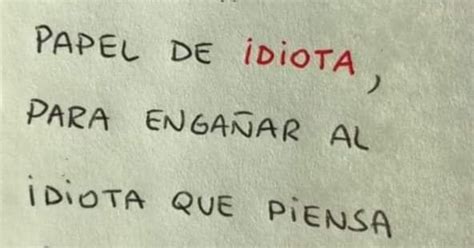 PAPEL DE iDiOTA,
PARA ENGAÑAR AL
iDiOTA QUE PiENSA